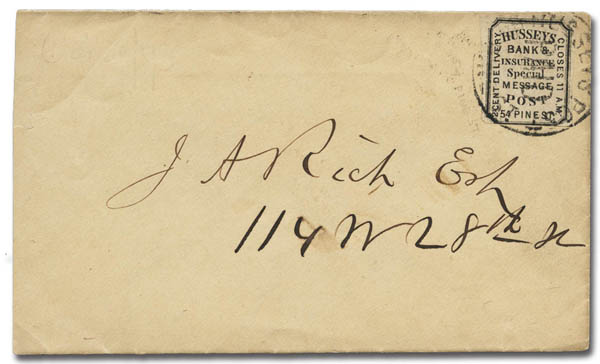 HUSSEY'S
BANK &
INSURANCE
Special
MESSAGE
POST
54 PINE ST.
CENT DELIVERY.
CLOSES 11 A.M.
HUSSEY'S PO
J A Rich Esq
114 W 28th st